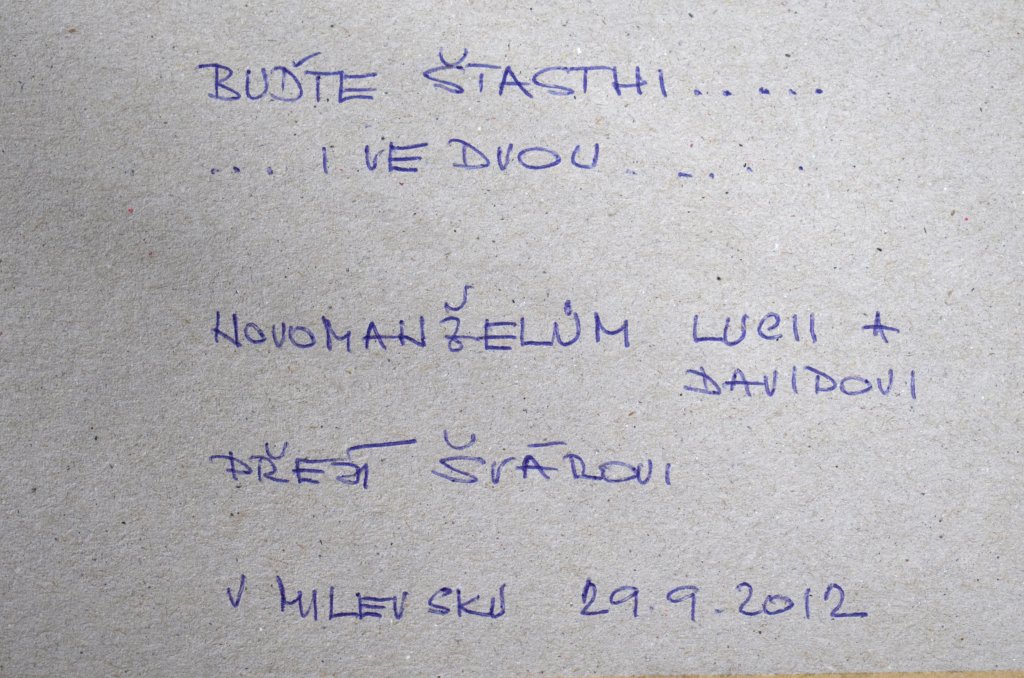 BUĎTE ŠTASTNI.....
... I VE DVOU.....
NOVOMANŽELŮM LUCII A
DAVIDOVI
PŘEJÍ ŠVÁROVI
V MILEVSKU 29.9.2012